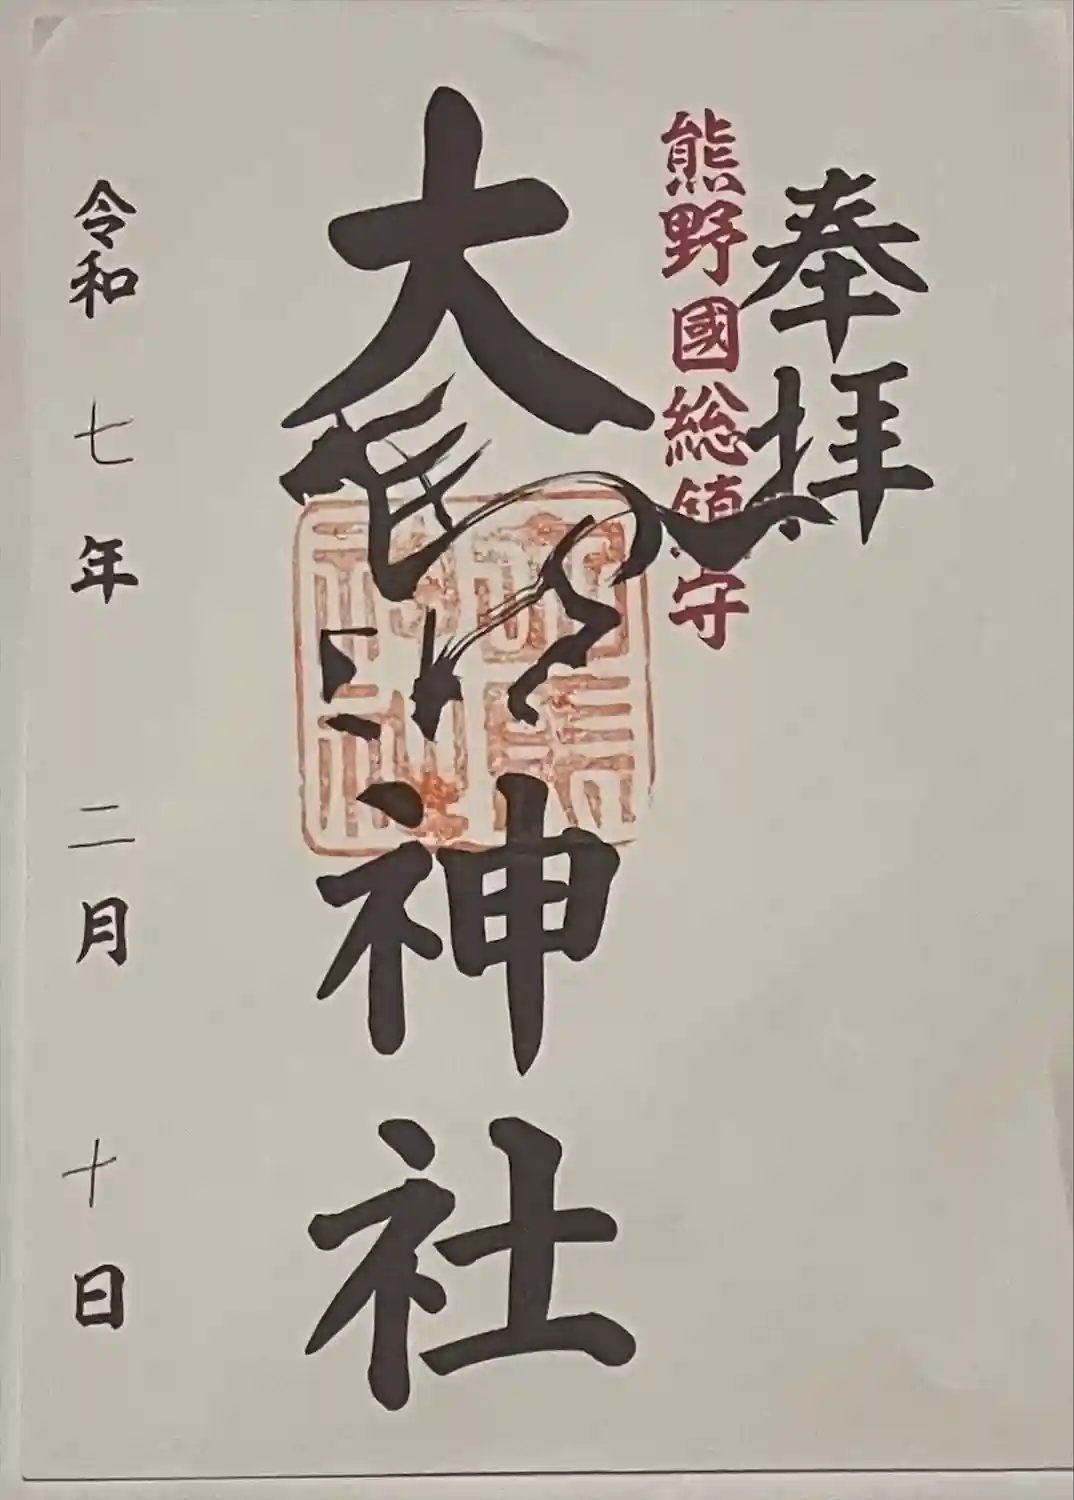 奉拝
熊野國総鎮守
大馬神社
令和七年二月十日